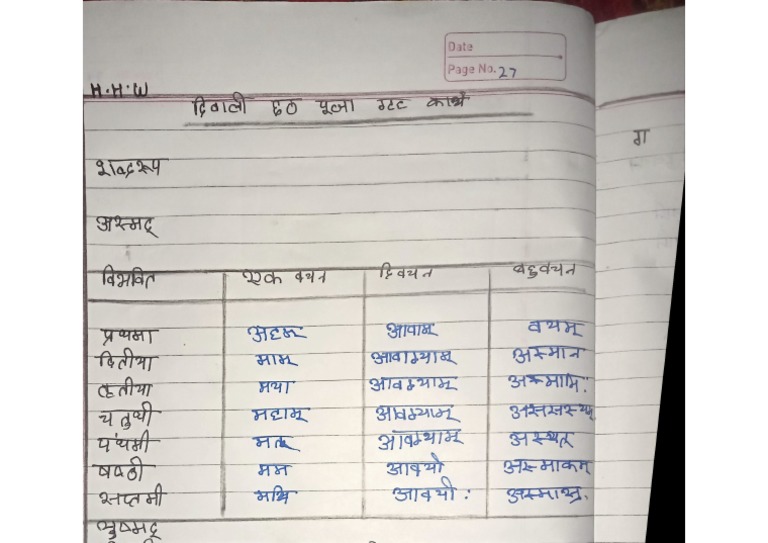 Date
Page No. 27
H.H.W
दिवाली छठ पूजा गृह कार्य
ग
शब्दरूप
अस्मद्
विभक्ति एक वचन द्विवचन बहुवचन
प्रथमा अहम् आवाम् वयम्
द्वितीया माम् आवाभ्याम् अस्मान
तृतीया मया आवभ्याम् अस्माभि:
चतुर्थी मह्यम् आवभ्याम्
पंचमी मत् आवभ्याम् अस्थत्
षष्ठी मम आवयो अस्माकम्
सप्तमी मयि आवयो: अस्मासु
युष्मद्